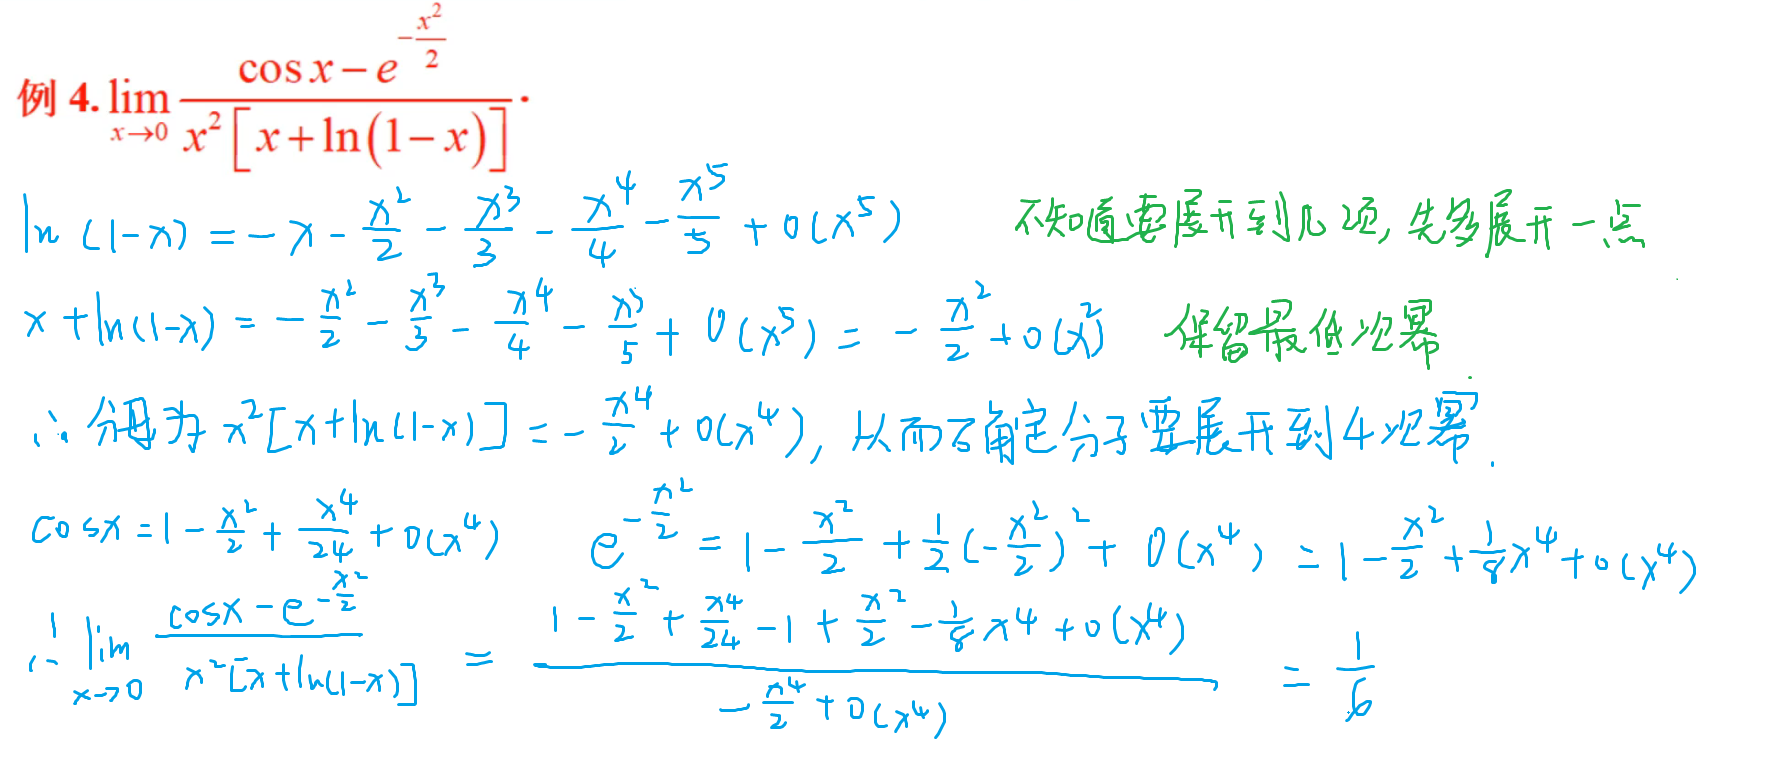 例 4. lim_{x→0} (cos x − e^{−x²/2}) / (x²[x + ln(1 − x)]).
ln(1−x) = −x − x²/2 − x³/3 − x⁴/4 − x⁵/5 + o(x⁵) 不知道要展开到几项, 先多展开一点
x + ln(1−x) = −x²/2 − x³/3 − x⁴/4 − x⁵/5 + o(x⁵) = −x²/2 + o(x²) 保留最低次幂
∴ 分母为 x²[x+ln(1−x)] = −x⁴/2 + o(x⁴), 从而确定分子要展开到4次幂.
cosx = 1 − x²/2 + x⁴/24 + o(x⁴) e^{−x²/2} = 1 − x²/2 + 1/2(−x²/2)² + o(x⁴) = 1 − x²/2 + 1/8 x⁴ + o(x⁴)
∴ lim_{x→0} (cosx − e^{−x²/2}) / (x²[x+ln(1−x)]) = (1 − x²/2 + x⁴/24 − 1 + x²/2 − 1/8 x⁴ + o(x⁴)) / (−x⁴/2 + o(x⁴)) = 1/6